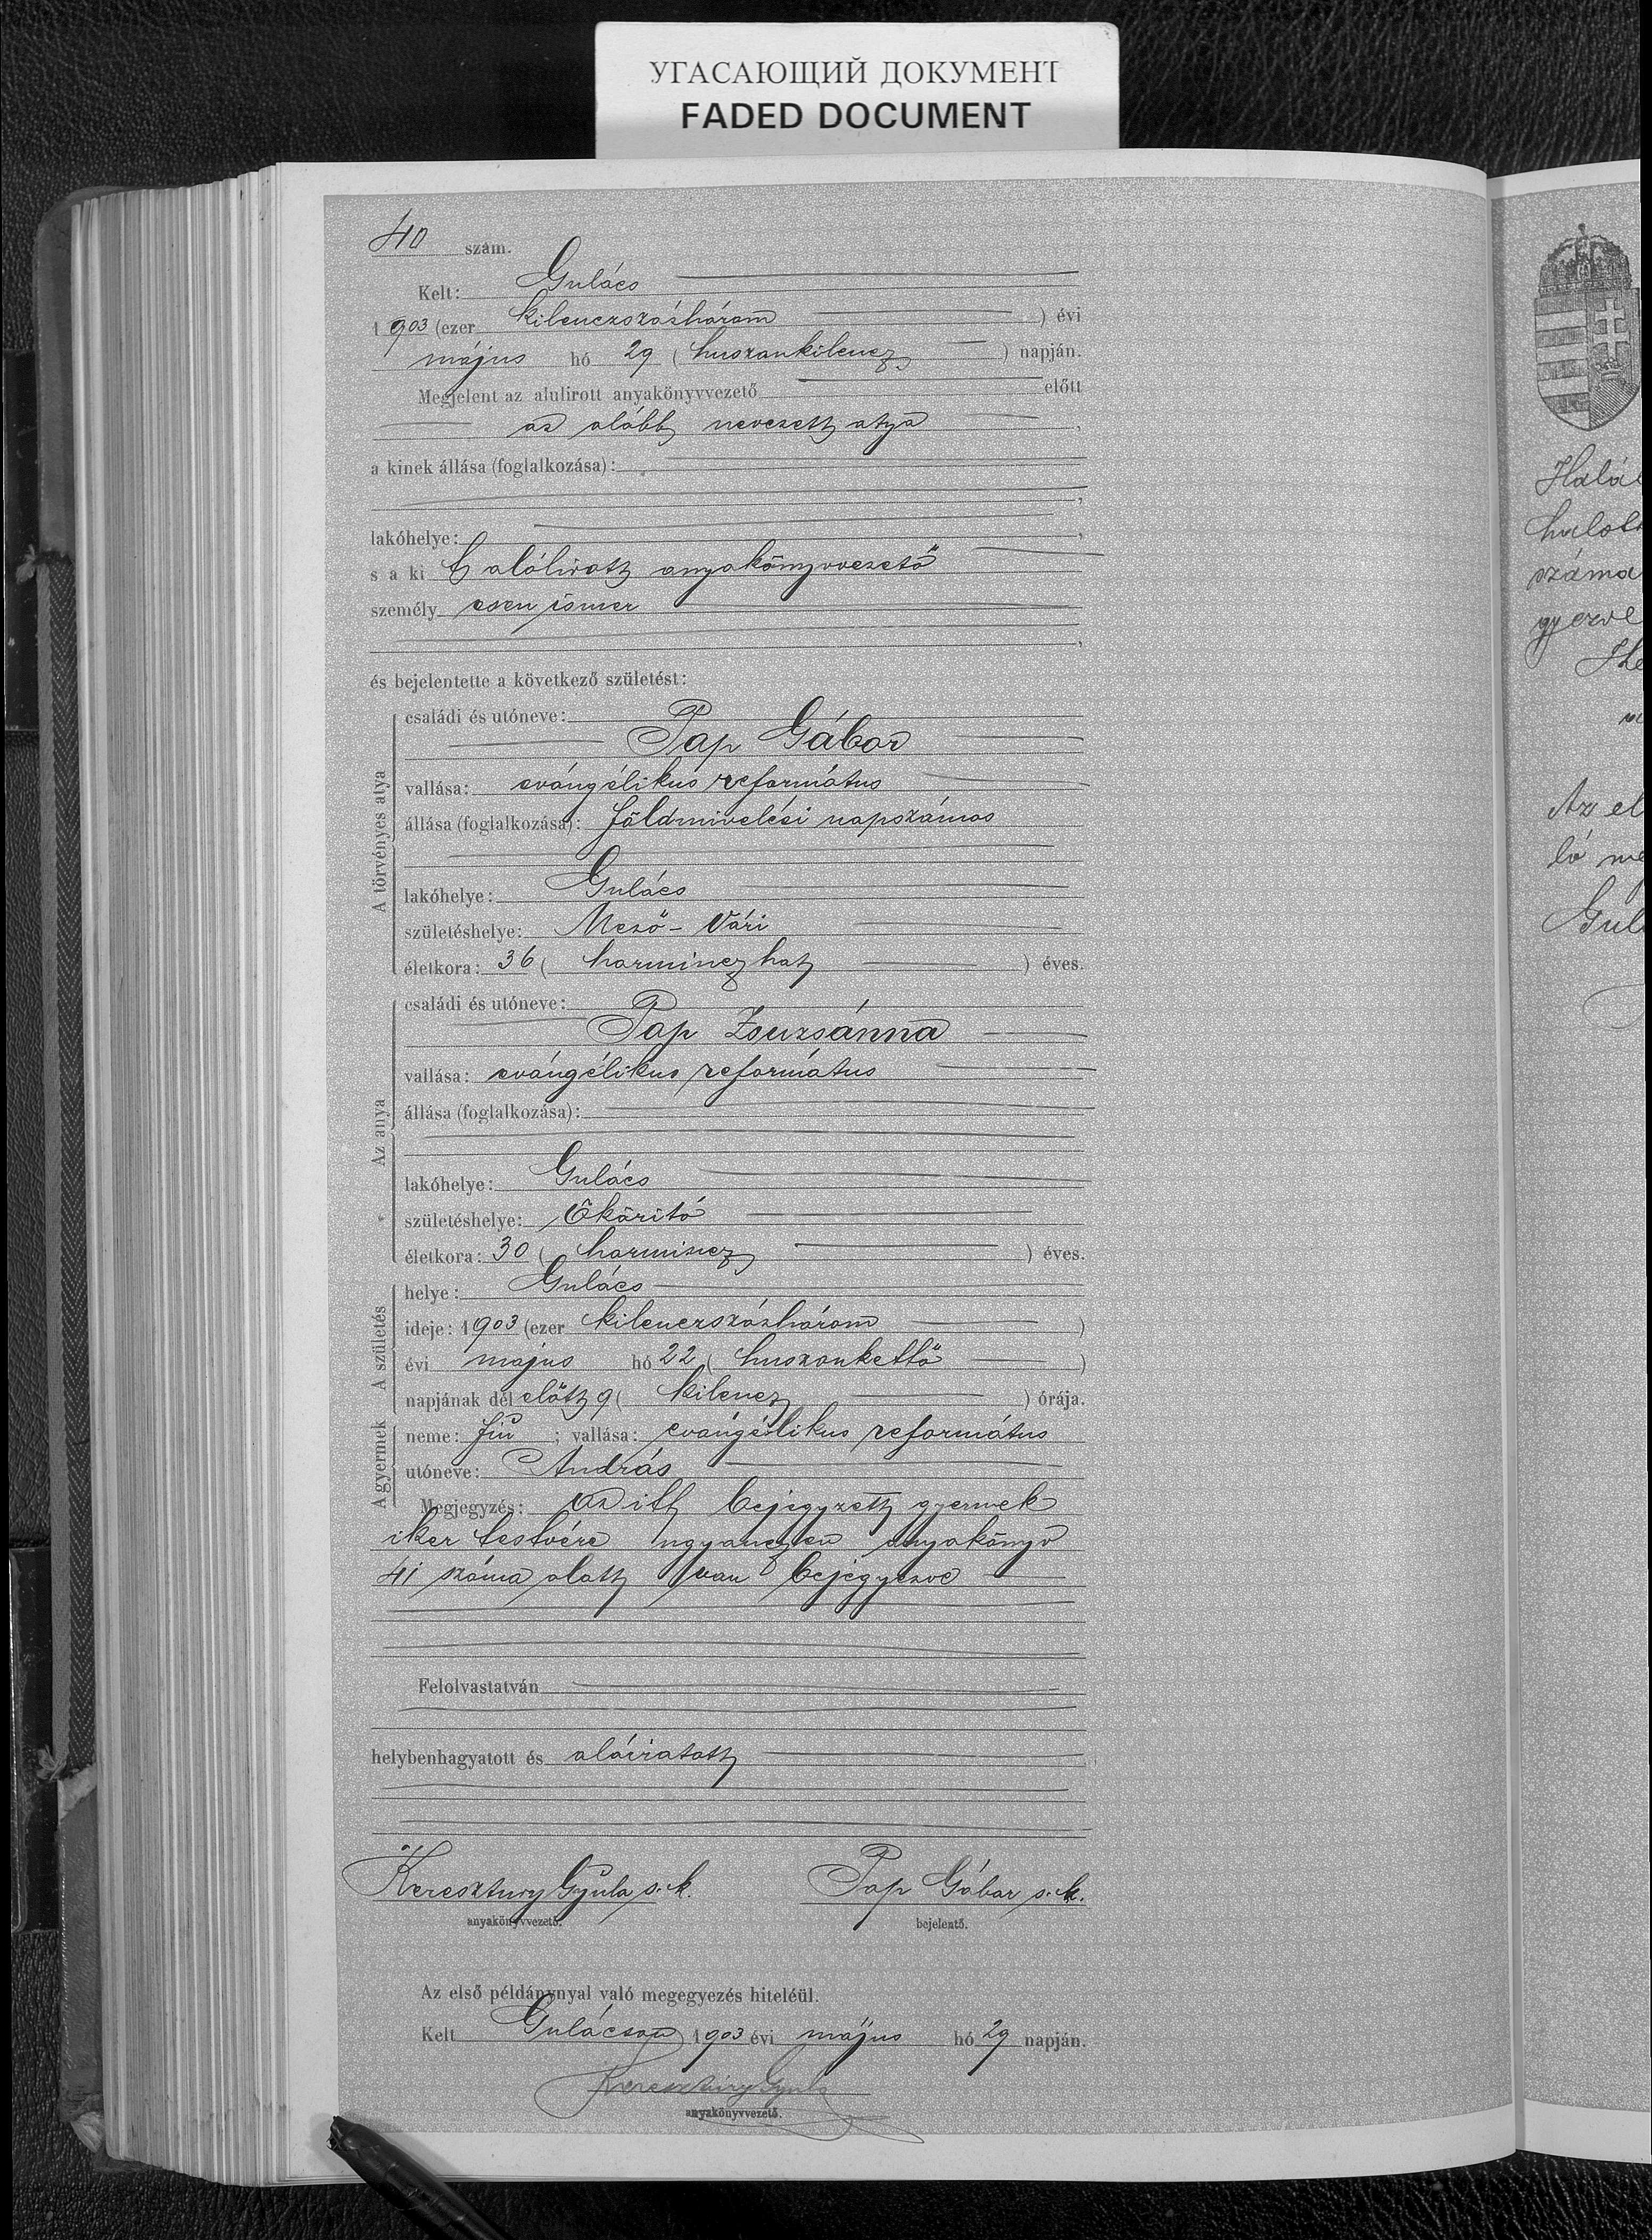 УГАСАЮЩИЙ ДОКУМЕНТ
FADED DOCUMENT
40 szám.
Kelt: Gulács
1903 (ezer kilenczszázhárom) évi
május hó 29 (huszonkilencz) napján.
Megjelent az alulirott anyakönyvvezető előtt
az alább nevezett atya,
a kinek állása (foglalkozása):
,
lakóhelye: ,
s a ki t alólirott anyakönyvvezető
személy esen ismer
,
és bejelentette a következő születést:
A törvényes atya
családi és utóneve:
Pap Gábor
vallása: evángélikus református
állása (foglalkozása): földmivelési napszámos
lakóhelye: Gulács
születéshelye: Mező-Vári
életkora: 36 (harminczhat) éves.
Az anya
családi és utóneve:
Pap Zsuzsánna
vallása: evángélikus református
állása (foglalkozása):
lakóhelye: Gulács
születéshelye: Ököritó
életkora: 30 (harmincz) éves.
A születés
helye: Gulács
ideje: 1903 (ezer kilenczszázhárom)
évi május hó 22 (huszonkettő)
napjának dél előtt 9 (kilencz) órája.
A gyermek
neme: fiu; vallása: evángélikus református
utóneve: András
Megjegyzés: Az itt bejegyzett gyermek
iker testvére ugyanezen anyakönyv
41 száma alatt van bejegyezve
Felolvastatván
helybenhagyatott és aláiratott
Keresztury Gyula s. k. Pap Gábor s. k.
anyakönyvvezető. bejelentő.
Az első példánynyal való megegyezés hiteléül.
Kelt Gulácson 1903 évi május hó 29 napján.
Keresztury Gyula
anyakönyvvezető.
számá
Az el